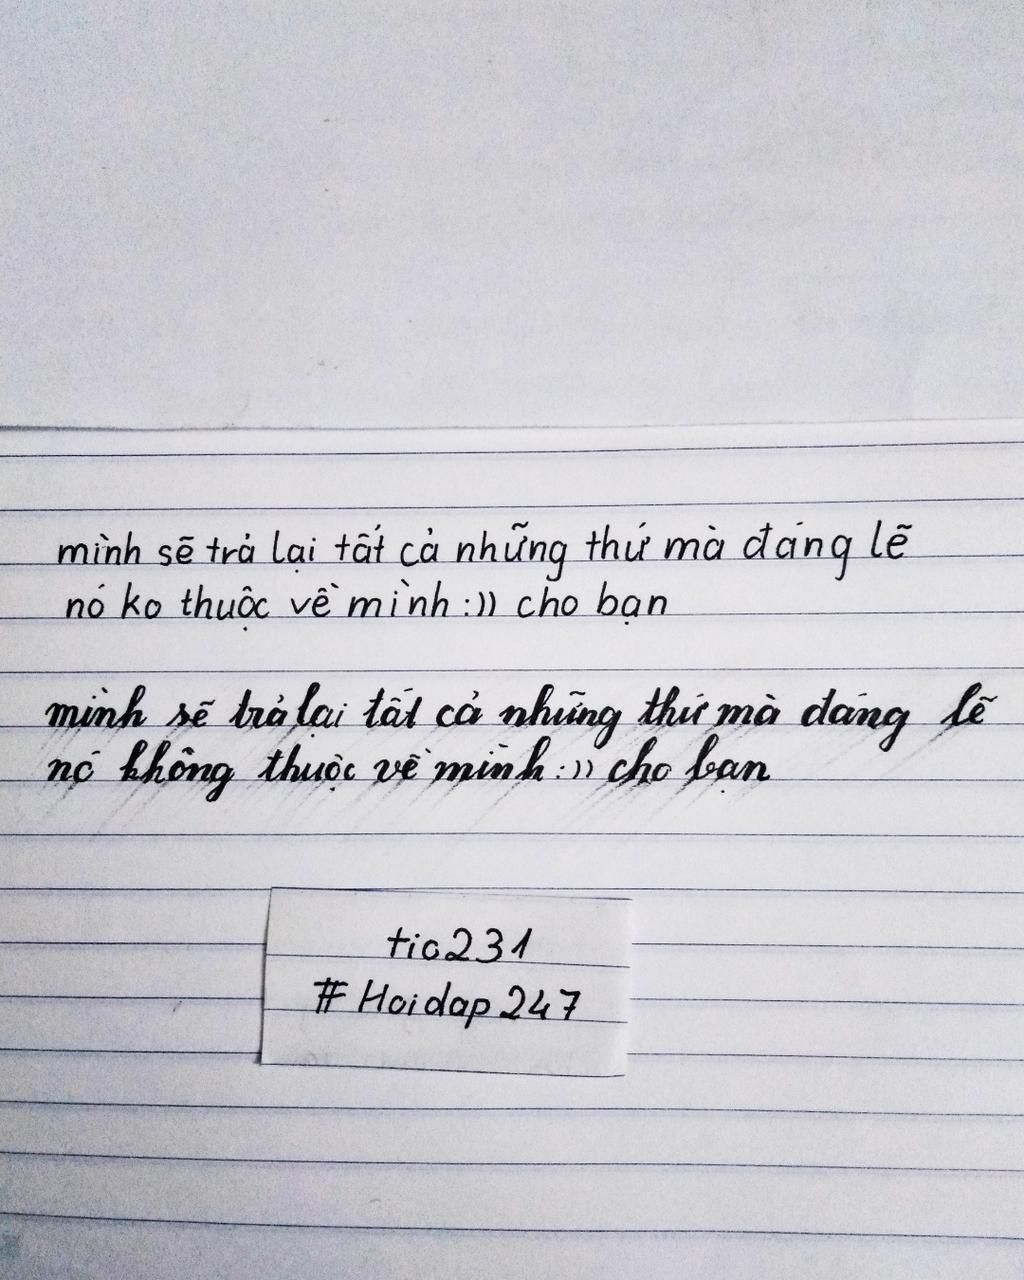 mình sẽ trả lại tất cả những thứ mà đáng lẽ
nó ko thuộc về mình :)) cho bạn
mình sẽ trả lại tất cả những thứ mà đáng lẽ
nó không thuộc về mình :)) cho bạn
tic231
#Hoidap247